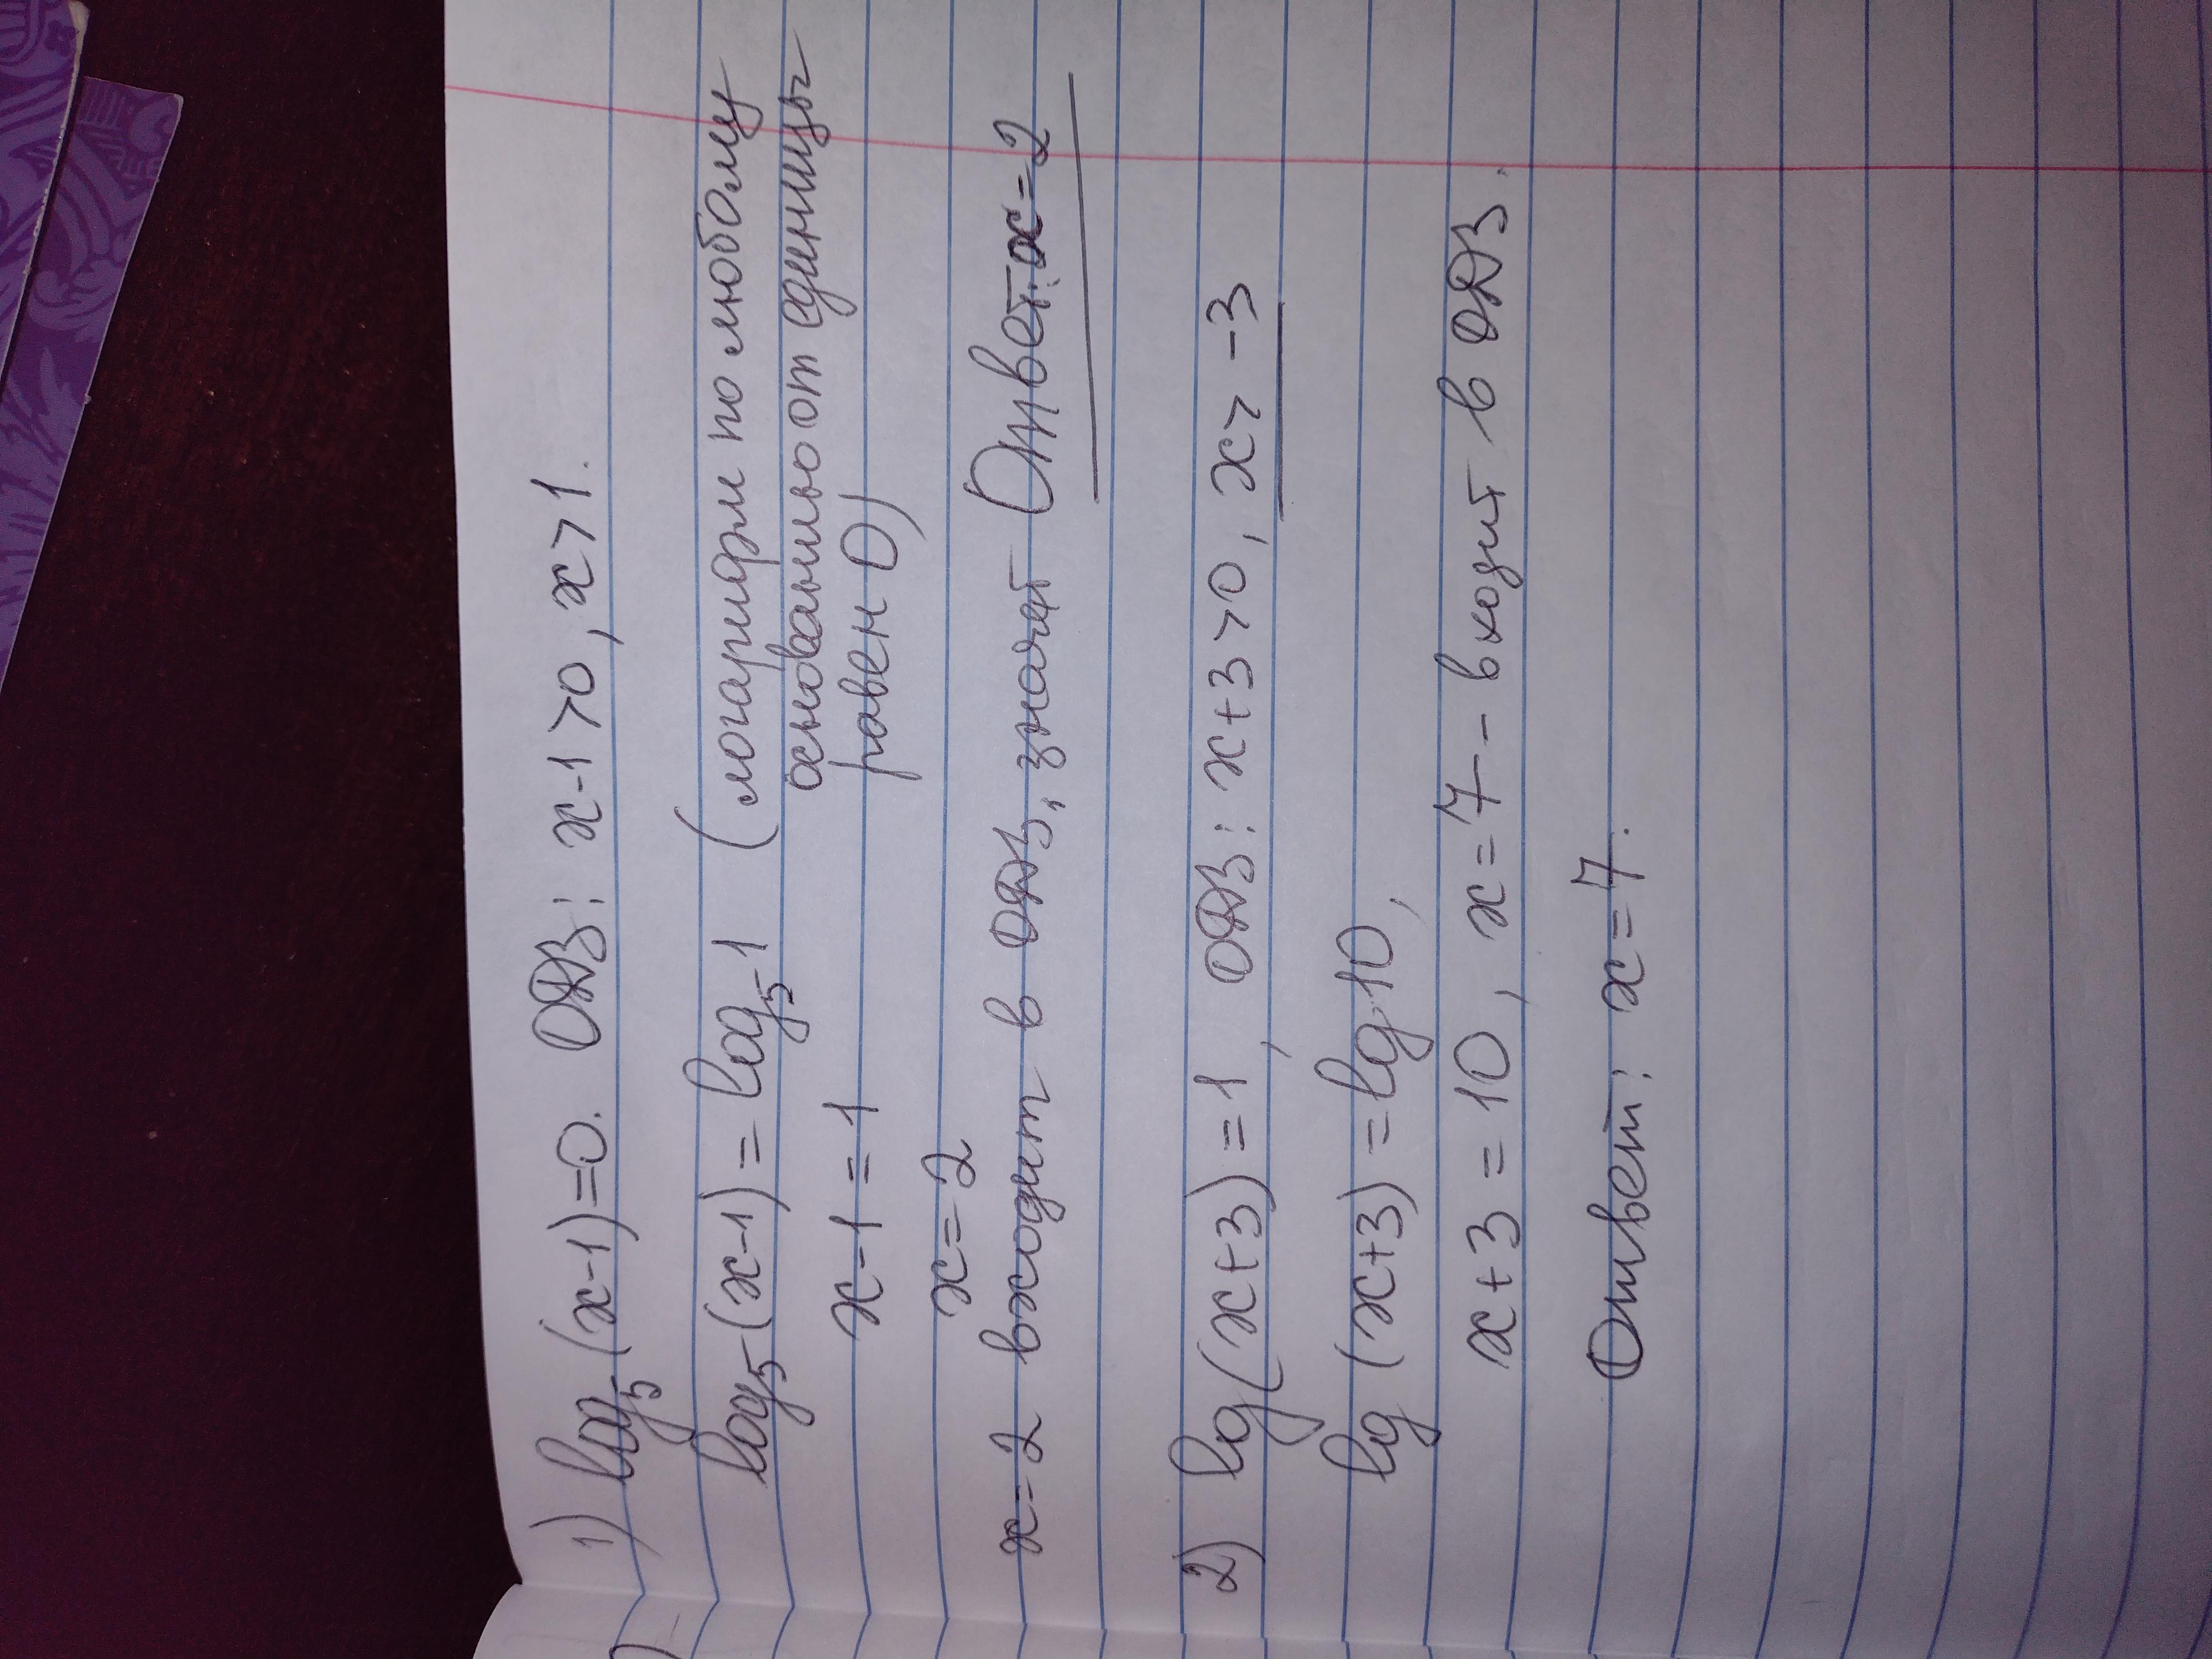 1) log₅(x-1)=0. ОДЗ: x-1>0, x>1.
log₅(x-1)=log₅1 (логарифм по любому
основанию от единицы
x-1=1 равен 0)
x=2
x=2 входит в ОДЗ, значит Ответ: x=2
2) lg(x+3)=1, ОДЗ: x+3>0, x>-3
lg(x+3)=lg10,
x+3=10, x=7- входит в ОДЗ.
Ответ: x=7.